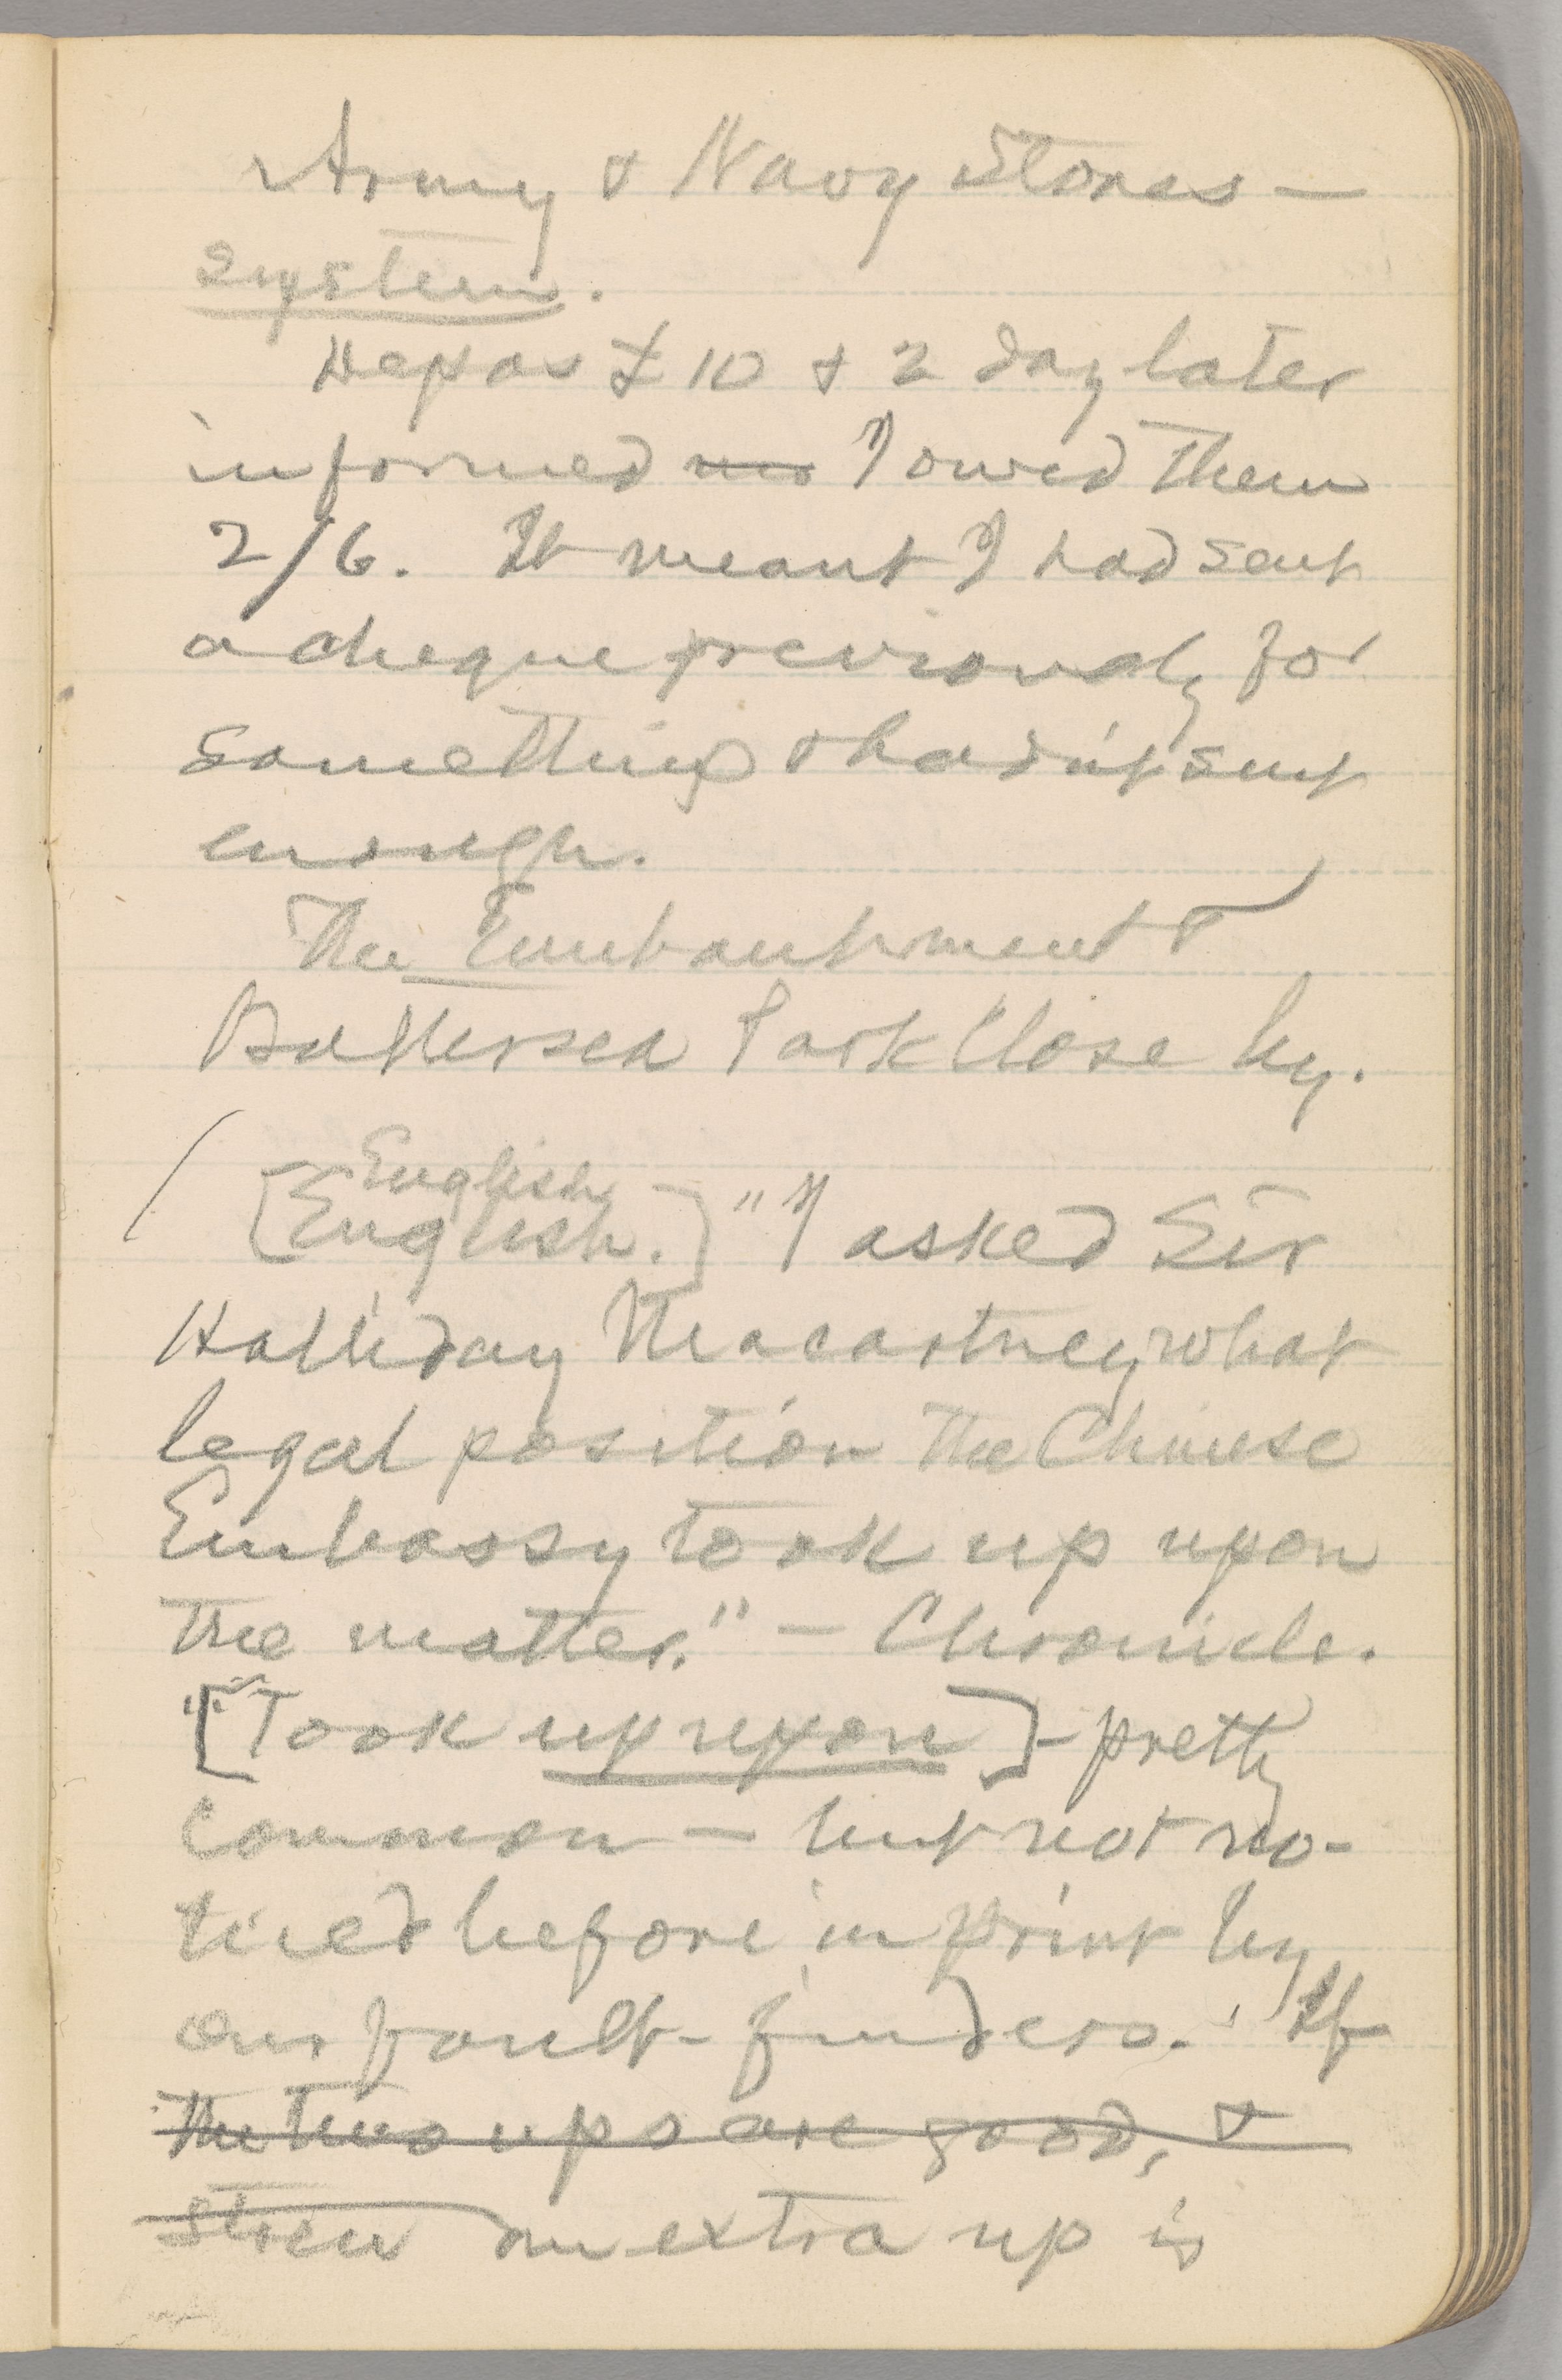 Army & Navy Stores —
system.
Depos £10 & 2 day later
informed me I owed them
2/6. It meant I had sent
a cheque previously for
something & hadn't sent
enough.
The Embankment &
Battersea Park close by.
English
[English.] "I asked Sir
Halliday Macartney what
legal position the Chinese
Embassy took up upon
the matter." — Chronicle.
"[Took up upon] — pretty
common — but not no-
ticed before in print by
our fault-finders. If
the two ups are good, &
strew an extra up is